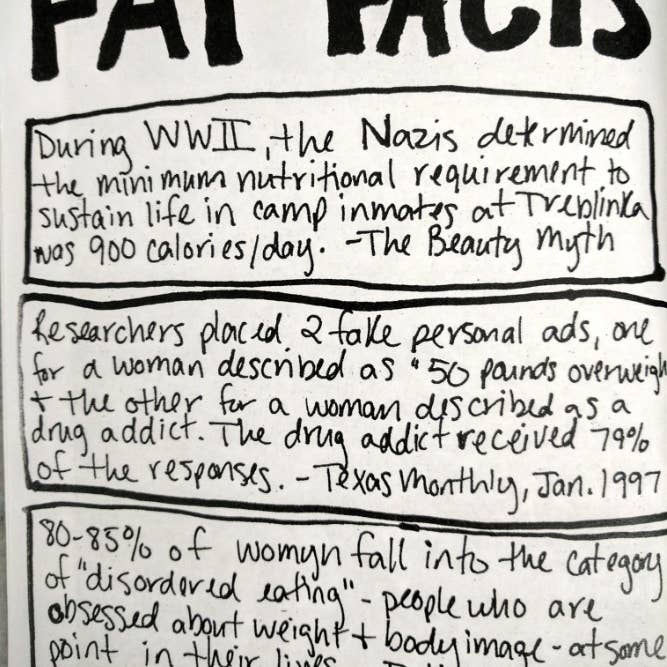 FAT FACTS
During WWII, the Nazis determined
the minimum nutritional requirement to
sustain life in camp inmates at Treblinka
was 900 calories/day. -The Beauty Myth
Researchers placed 2 fake personal ads, one
for a woman described as "50 pounds overweigh
+ the other for a woman described as a
drug addict. The drug addict received 79%
of the responses. - Texas Monthly, Jan. 1997
80-85% of womyn fall into the category
of "disordered eating" - people who are
obsessed about weight + body image - at some
point in their lives.